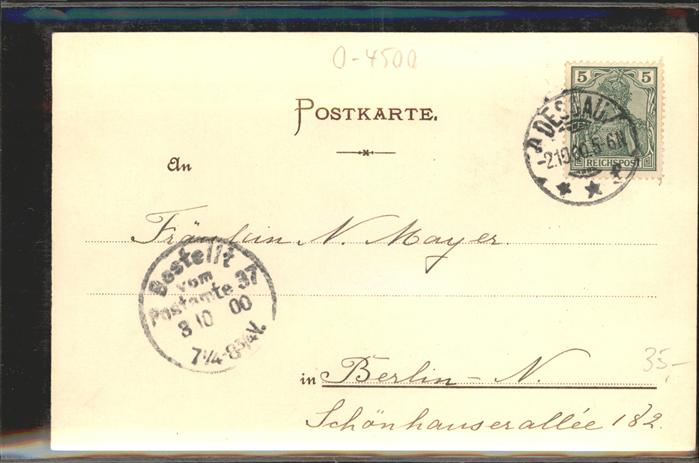 0-4500
5 5
REICHSPOST
DESSAU.
-2.10.00.5-6N
POSTKARTE.
An
Fräulein N. Mayer.
Bestellt
vom
Postamte 37
3 10 00
7¼-8¾V.
35,-
in Berlin-N.
Schönhauserallée 182.